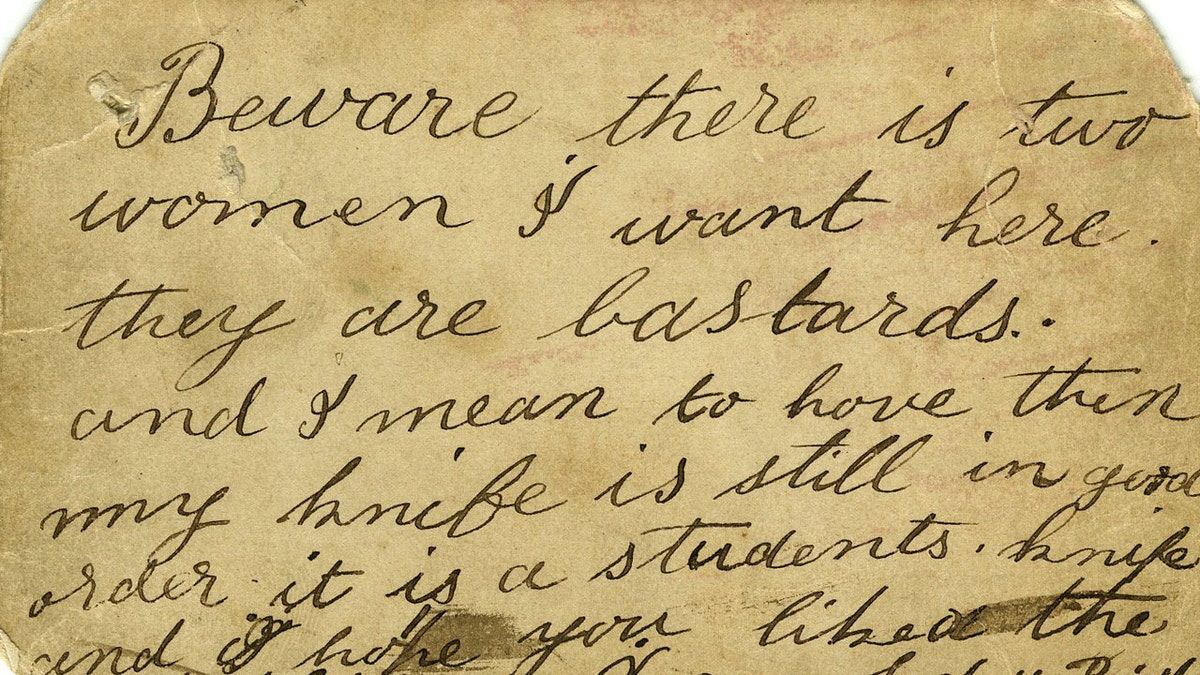 Beware there is two
women I want here.
they are bastards.
and I mean to have then
my knife is still in good
order it is a students. knife
and I hope you liked the